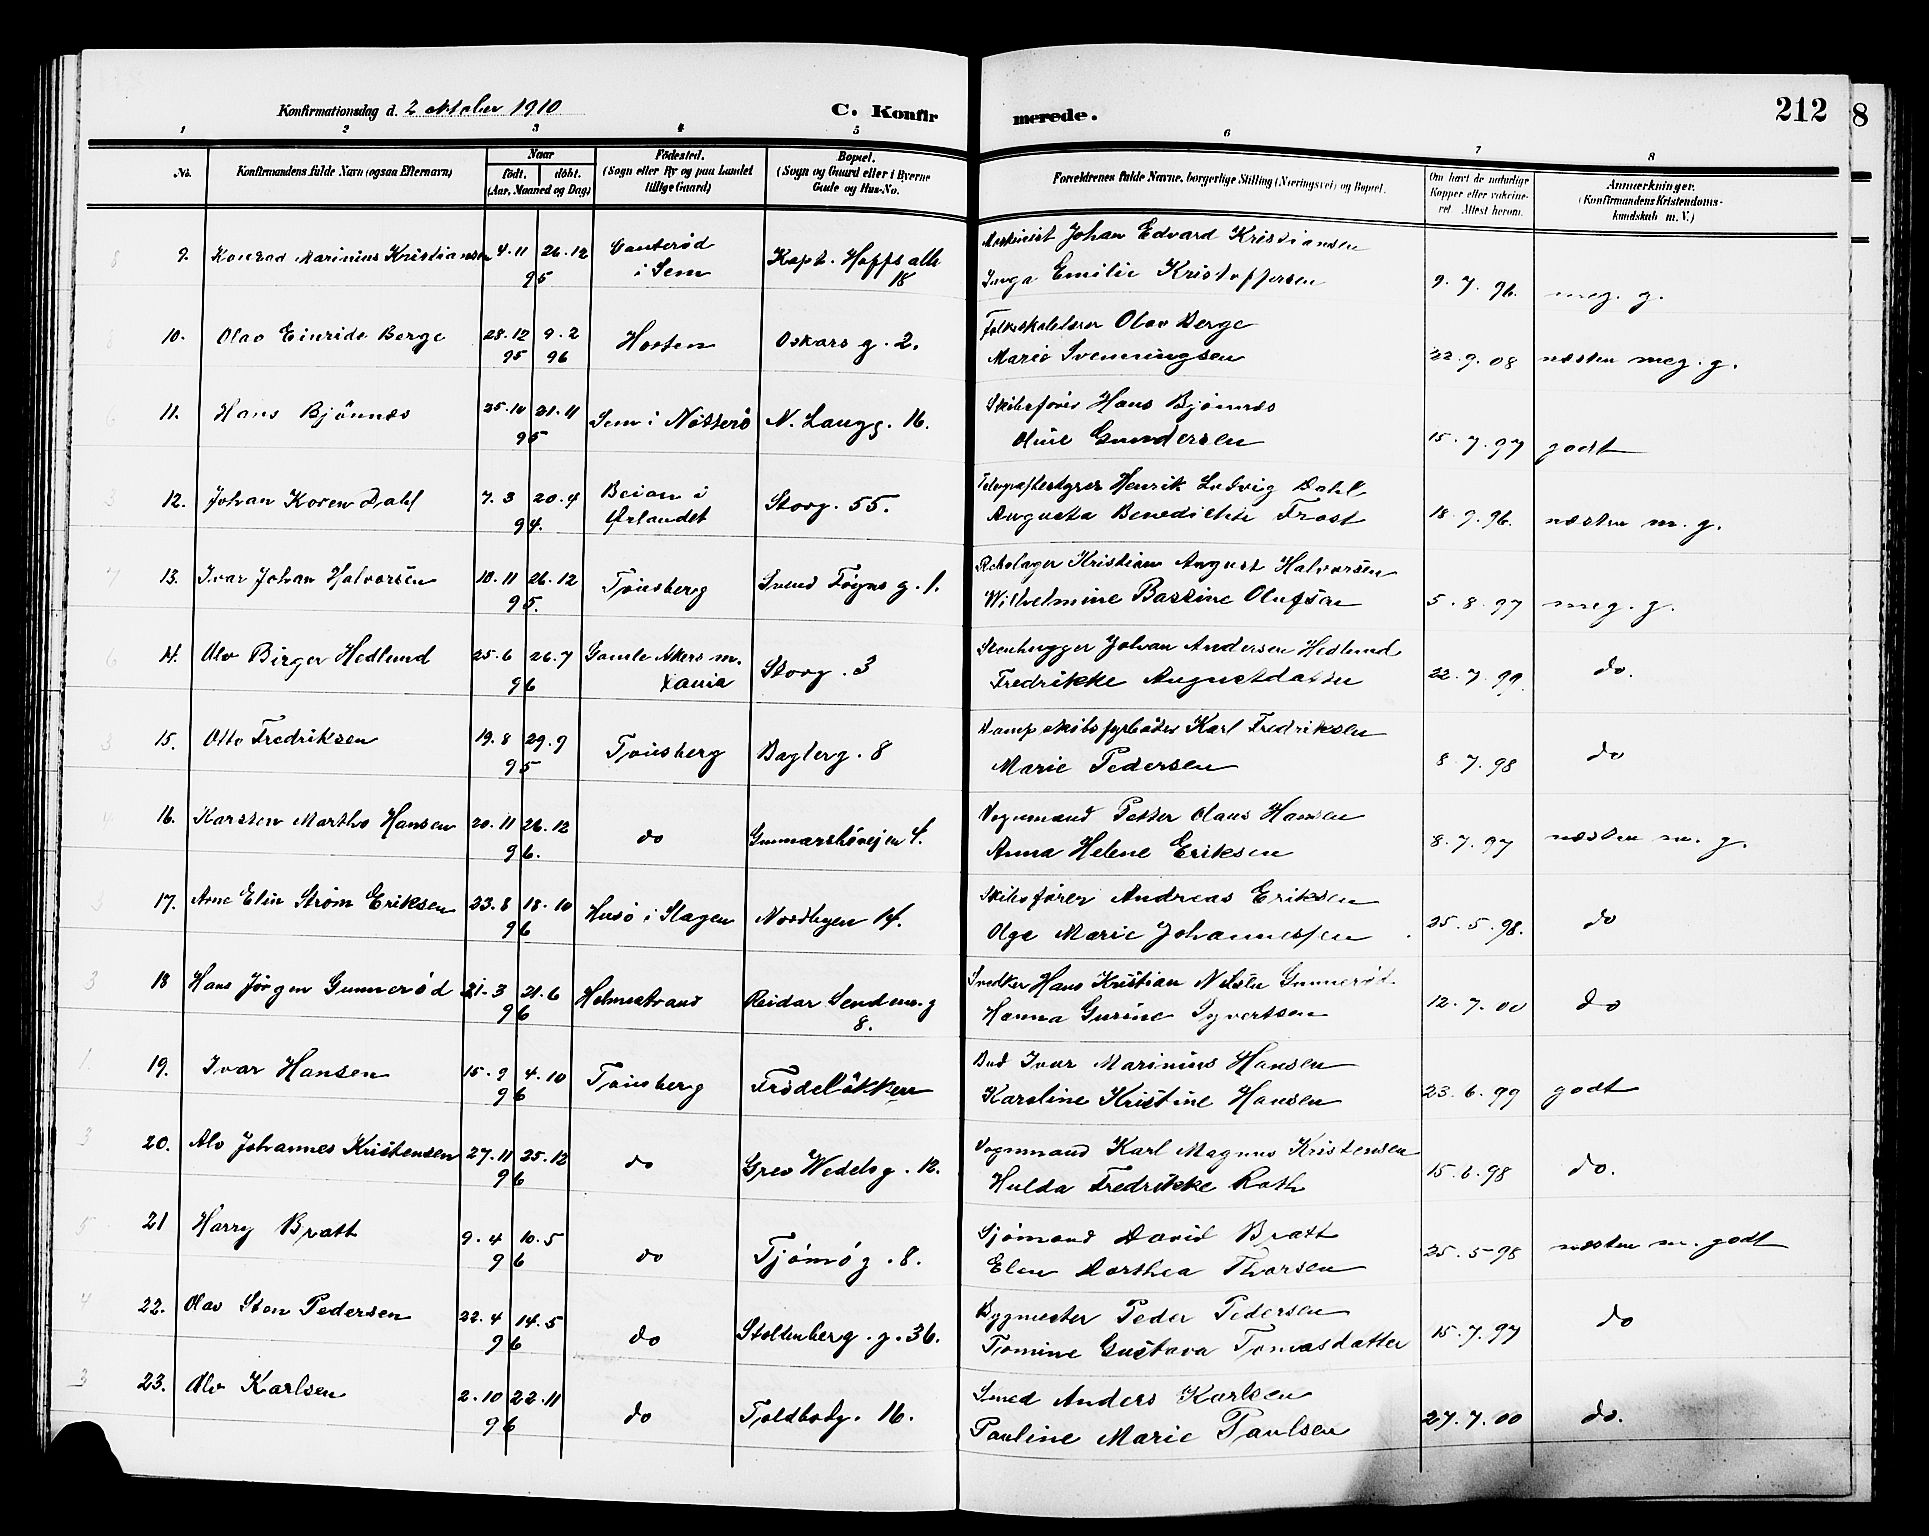 Konfirmationsdag d. 2 oktober 1910
C. Konfirmerede.
212
8
1 2 3 4 5 6 7 8
No. Konfirmandens fulde Navn (ogsaa Efternavn) Naar født. døbt. (Aar, Maaned og Dag) Fødested. (Sogn eller By og paa Landet tillige Gaard) Bopæl. (Sogn og Gaard eller i Byerne Gade og Hus-No. Forældrenes fulde Navne, borgerlige Stilling (Næringsvei) og Bopæl. Om havt de naturlige Kopper eller vakcineret. Attest herom. Anmærkninger. (Konfirmandens Kristendomskundskab m. V.)
9. Konrad Marinius Kristiansen 4.11 26.12 i Sem Kapt. Hoffs alle Maskinist Johan Edvard Kristiansen
95 18 Inga Emilie Kristoffersen 9.7.96. meg. g.
10. Olav Einride Berge 28.12 9.2 Horten Oskars g. 2. Folkeskolelærer Olav Berge
95 96 Marie Svenningsen 22.9.08 næsten meg. g.
11. Hans Bjønnes 25.10 21.11 Sem i Nøtterø N. Langg. 16. Skibsfører Hans Bjønnes
95 Oline Gundersen 15.7.97 godt
12. Johan Koren Dahl 7.3 20.4 Beian i Ørlandet Storg. 55. Telegrafbestyrer Henrik Ludvig Dahl
94. Augusta Benedikte Frost 18.9.96. næsten m. g.
13. Ivar Johan Halvorsen 10.11 26.12 Tønsberg Svend Føyns g. 1. Kristian August Halvorsen
95. Wilhelmine Bassine Olufsen 5.8.97 meg. g.
14. Olv Birger Hedlund 25.6 26.7 Gamle Akers m. Xania Storg. 3 Stenhugger Johan Andersen Hedlund
96 Fredrikke Augustdatter 22.7.99. do.
15. Otto Fredriksen 19.8 29.9 Tønsberg Baglerg. 8 Dampskibsfyrbøder Karl Fredriksen
95 Marie Pedersen 8.7.98 do
16. Karsten Martho Hansen 20.11 26.12 do Gunnarsbøvejen 4. Vognmand Petter Olaus Hansen
96. Anna Helene Eriksen 8.7.97 næsten m. g.
17. Arne Elin Strøm Eriksen 23.8 18.10 Husø i Slagen Nordbyen 14. Skibsfører Andreas Eriksen
96 Olga Marie Johannessen 25.5.98. do
18 Hans Jørgen Gunnerød 21.3 21.6 Holmestrand Reidar Sendem. g Snedker Hans Kristian Nilsen Gunnerød
96 8. Hanna Gurine Syvertsen 12.7.00 do
19. Ivar Hansen 15.9 4.10 Tønsberg Frodeløkken Bud Ivar Marinius Hansen
96 Karoline Kristine Hansen 23.6.99 godt
20. Alv Johannes Kristensen 27.11 25.12 do Grev Wedels g. 12. Vognmand Karl Magnus Kristensen
96 Hulda Fredrikke Roth 15.6.98 do.
21 Harry Bratt 9.4 10.5 do Tjømø g. 8. Sjømand David Bratt
96 Elen Dorthea Thorsen 25.5.98 næsten m. godt
22. Olav Sten Pedersen 22.4 14.5 do Stoltenberg. g. 36. Bygmester Peder Pedersen
96 Tomine Gustava Tomasdatter 15.7.97 do
23. Olv Karlsen 2.10 22.11 do Toldbodg. 16. Smed Anders Karlsen
96 Pauline Marie Paulsen 27.7.00 do.